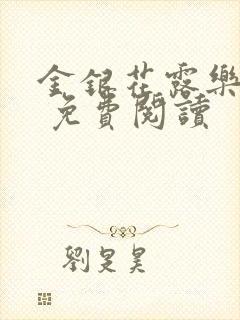 金銀花露樂
免費閱讀
劉昰昊